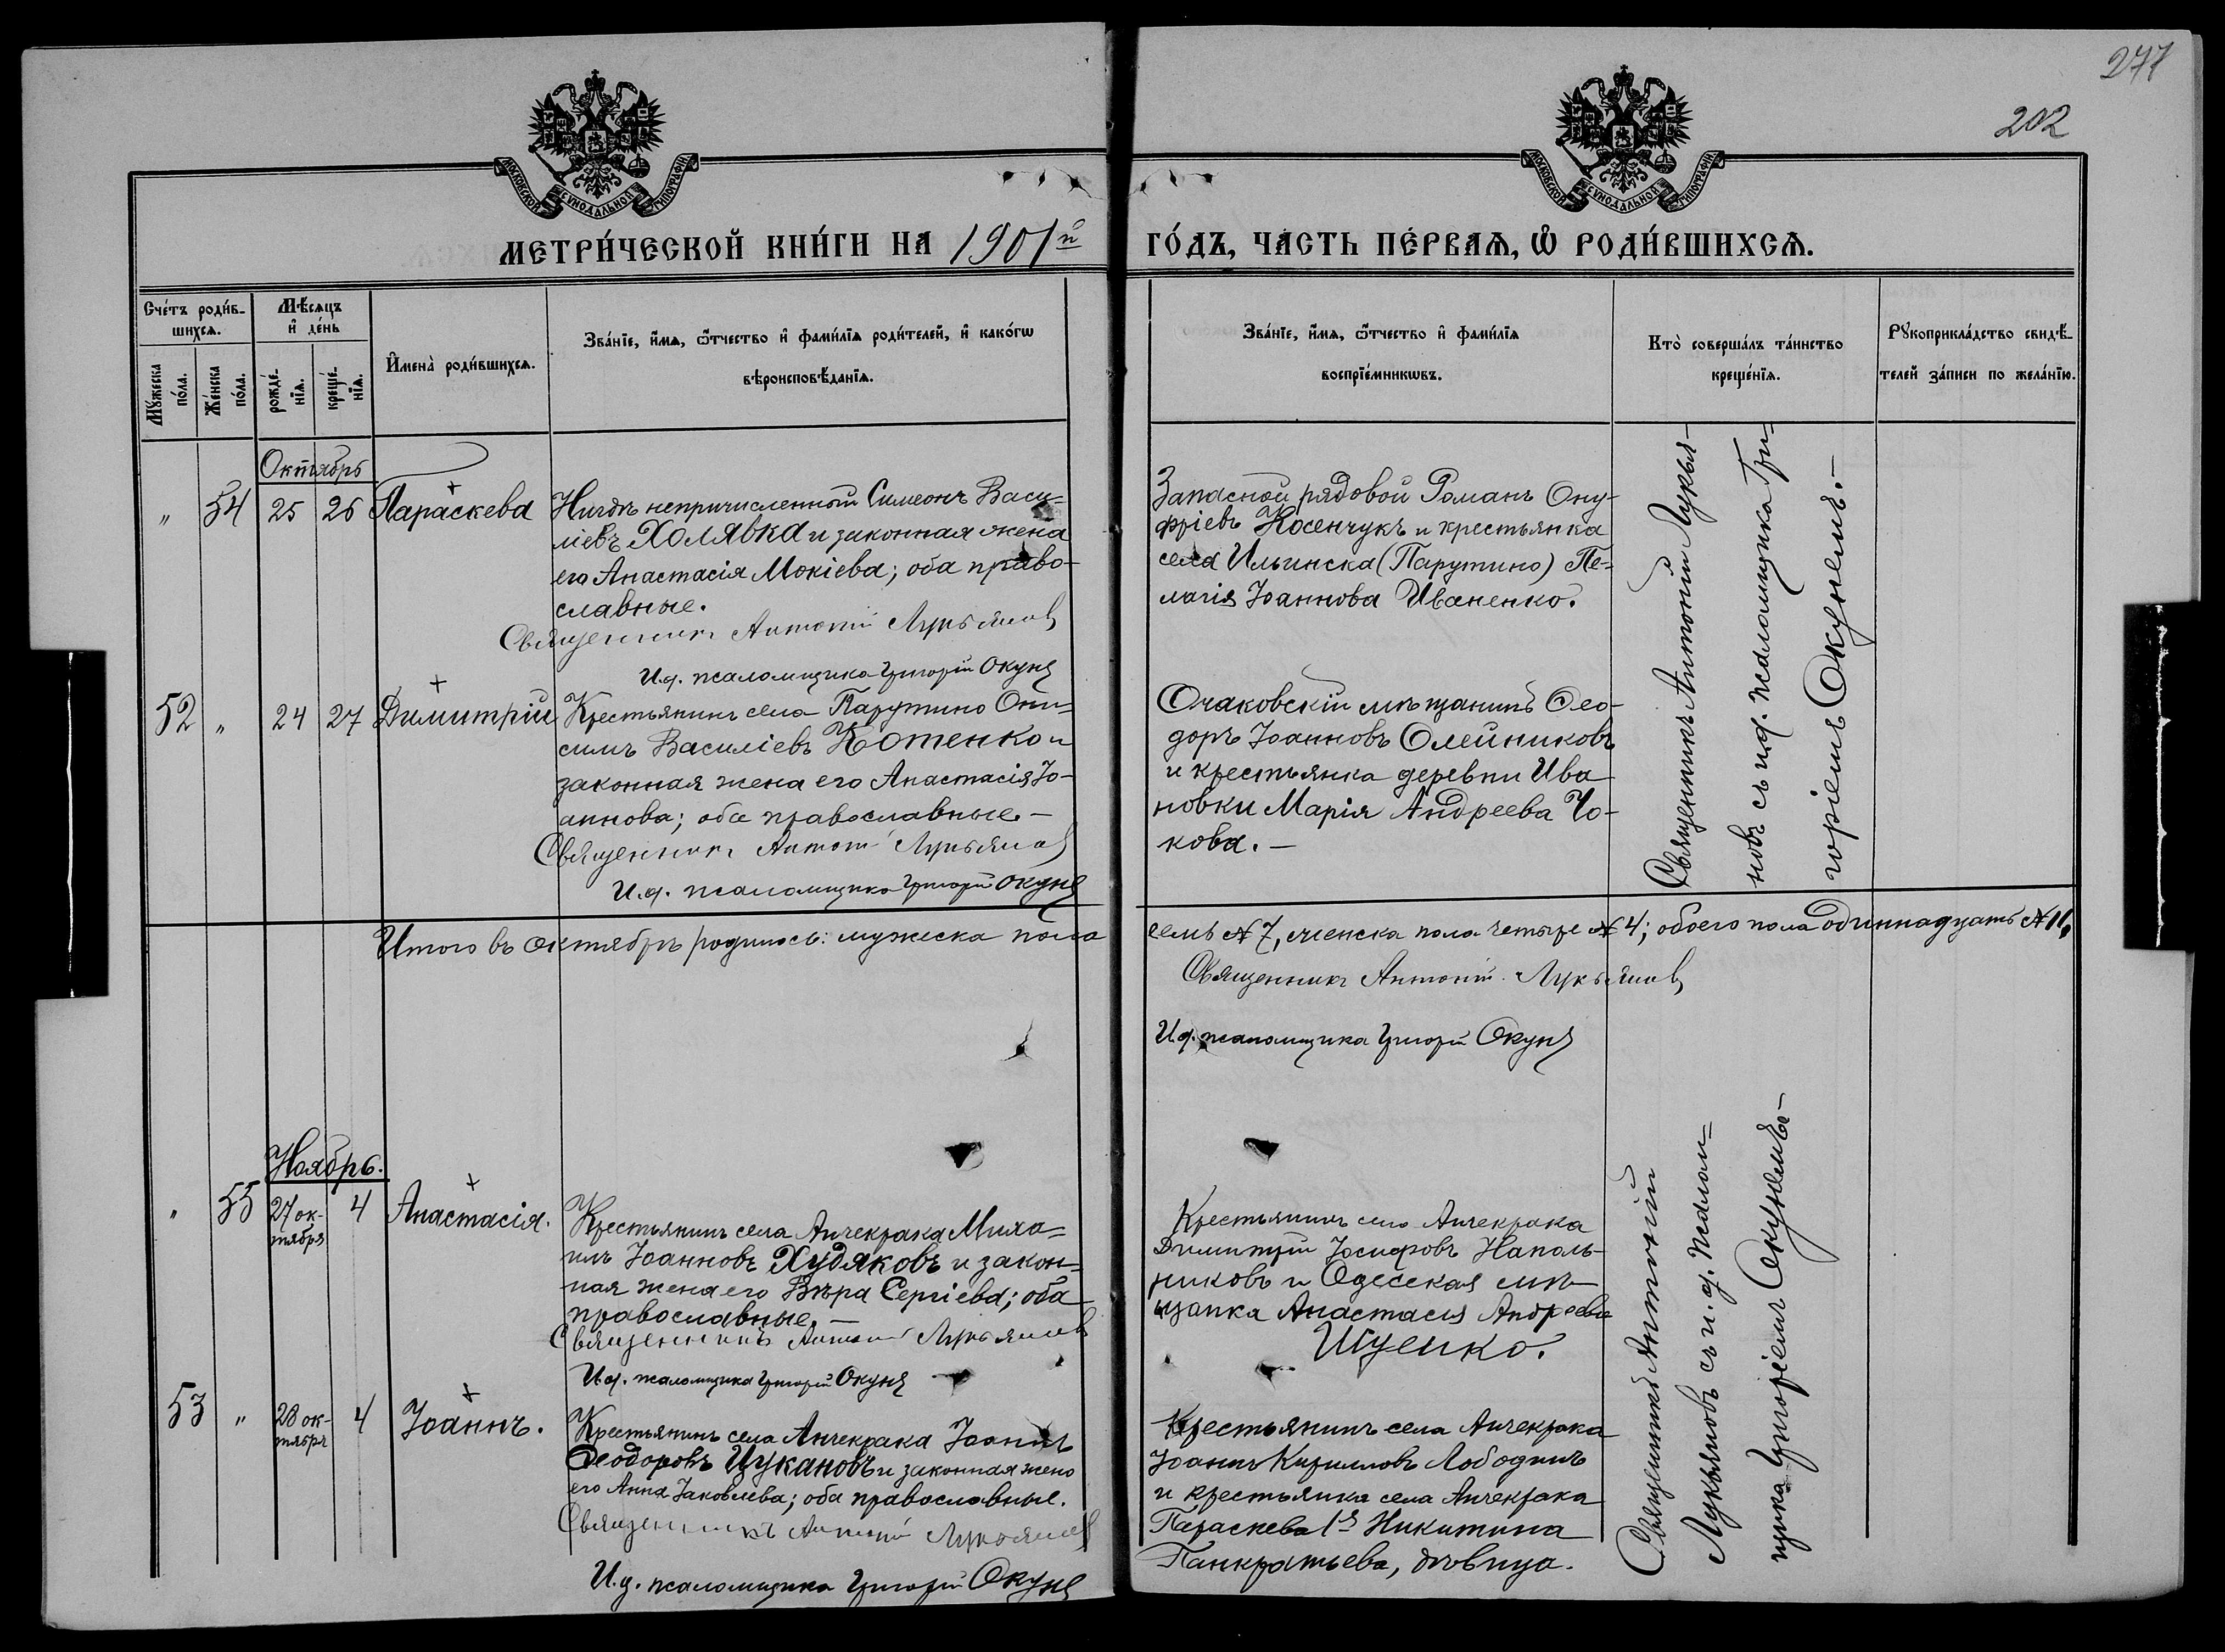 277
202
МОСКОВСКОЙ СѴНОДАЛЬНОЙ ТИПОГРАФІИ
МОСКОВСКОЙ СѴНОДАЛЬНОЙ ТИПОГРАФІИ
МЕТРИ́ЧЕСКОЙ КНИ́ГИ НА 1901й ГО́ДЪ, ЧА́СТЬ ПЕ́РВАѦ, Ѽ РОДИ́ВШИХСѦ.
Сче́тъ роди́в-
шихсѧ.
Мꙋ́жеска по́ла.
Же́нска по́ла.
Мѣ́сѧцъ
и҆ де́нь
рожде́-
нїѧ.
креще́-
нїѧ.
И҆мена̀ роди́вшихсѧ.
Зва́нїе, и҆́мѧ, ѻ҆́тчество и҆ фами́лїѧ роди́телей, и҆ како́гѡ
вѣроисповѣ́данїѧ.
Зва́нїе, и҆́мѧ, ѻ҆́тчество и҆ фами́лїѧ
воспрїе́мникѡвъ.
Кто̀ соверша́лъ та́инство
креще́нїѧ.
Рꙋкоприкла́дство свидѣ́-
телей за́писи по жела́нїю.
Октябрь
" 54 25 26 Параскева
Нигдѣ непричисленный Симеонъ Васи-
ліевъ Холявка и законная жена
его Анастасія Мокіева; оба право-
славные.
Священникъ Антоній Лукьяновъ
И.д. псаломщика Григорій Окунь
Запасной рядовой Романъ Ону-
фріевъ Косенчукъ и крестьянка
села Ильинска (Парутино) Пе-
лагія Іоаннова Иваненко.
52 " 24 27 Димитрій
Крестьянинъ села Парутино Они-
симъ Василіевъ Котенко и
законная жена его Анастасія Іо-
аннова; оба православные. —
Священникъ Антоній Лукьяновъ
И.д. псаломщика Григорій Окунь
Очаковскій мѣщанинъ Ѳео-
доръ Іоанновъ Олейниковъ
и крестьянка деревни Ива-
новки Марія Андреева Чо-
кова. —
Священникъ Антоній Лукья-
новъ съ и.д. псаломщика Гри-
горіемъ Окунемъ. —
Итого въ октябрѣ родилось: мужеска пола семь № 7, женска пола четыре № 4; обоего пола одиннадцать № 11.
Священникъ Антоній Лукьяновъ
И.д. псаломщика Григорій Окунь
Ноябрь.
" 55 27 ок-
тября 4 Анастасія.
Крестьянинъ села Анчекрака Миха-
илъ Іоанновъ Худяковъ и закон-
ная жена его Вѣра Сергіева; оба
православные. —
Священникъ Антоній Лукьяновъ
И.д. псаломщика Григорій Окунь
Крестьянинъ села Анчекрака
Димитрій Іосифовъ Наполь-
никовъ и Одесская мѣ-
щанка Анастасія Андреева
Ищенко.
53 " 28 ок-
тября 4 Іоаннъ.
Крестьянинъ села Анчекрака Іоаннъ
Ѳеодоровъ Цукановъ и законная жена
его Анна Іаковлева; оба православные.
Священникъ Антоній Лукьяновъ
И.д. псаломщика Григорій Окунь
Крестьянинъ села Анчекрака
Іоаннъ Кирилловъ Лободинъ
и крестьянка села Анчекрака
Параскева 1я Никитина
Панкратьева, дѣвица.
Священникъ Антоній
Лукьяновъ съ и.д. псалом-
щика Григоріемъ Окунемъ —